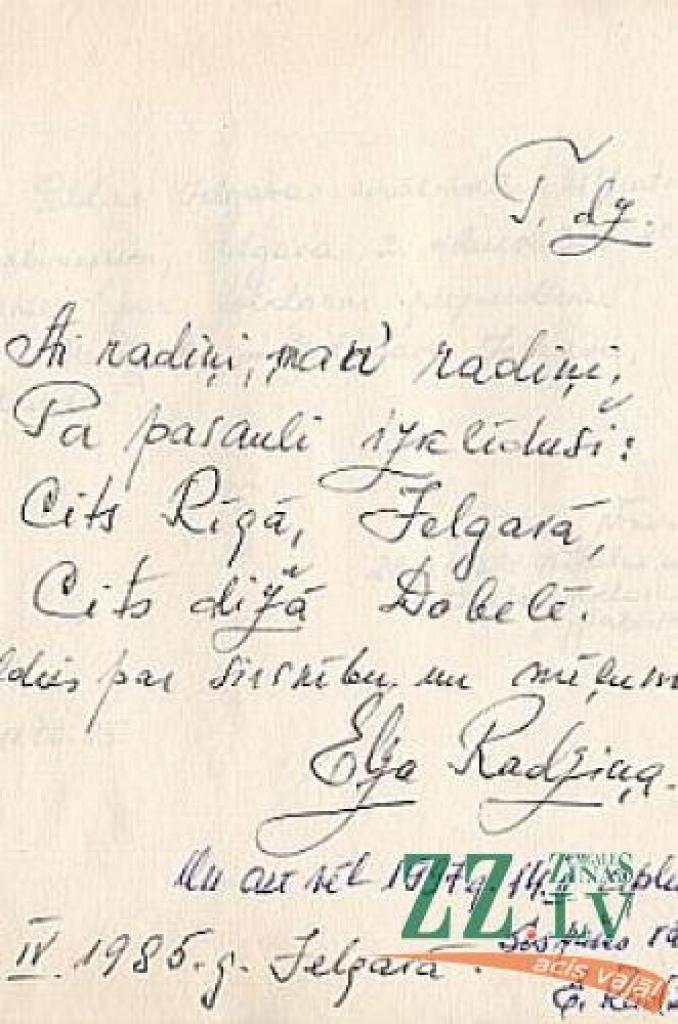 T. dz.
Ai radiņi, manī radiņi,
Pa pasauli izklīduši:
Cits Rīgā, Jelgavā,
Cits dižā Dobelē.
par sirsnību un mīļum
Elza Radziņa.
Un arī vēl 1987g. 14.
IV. 1985. g. Jelgavā.
ZZ.LV
ZEMGALES ZIŅAS
acis vaļā!